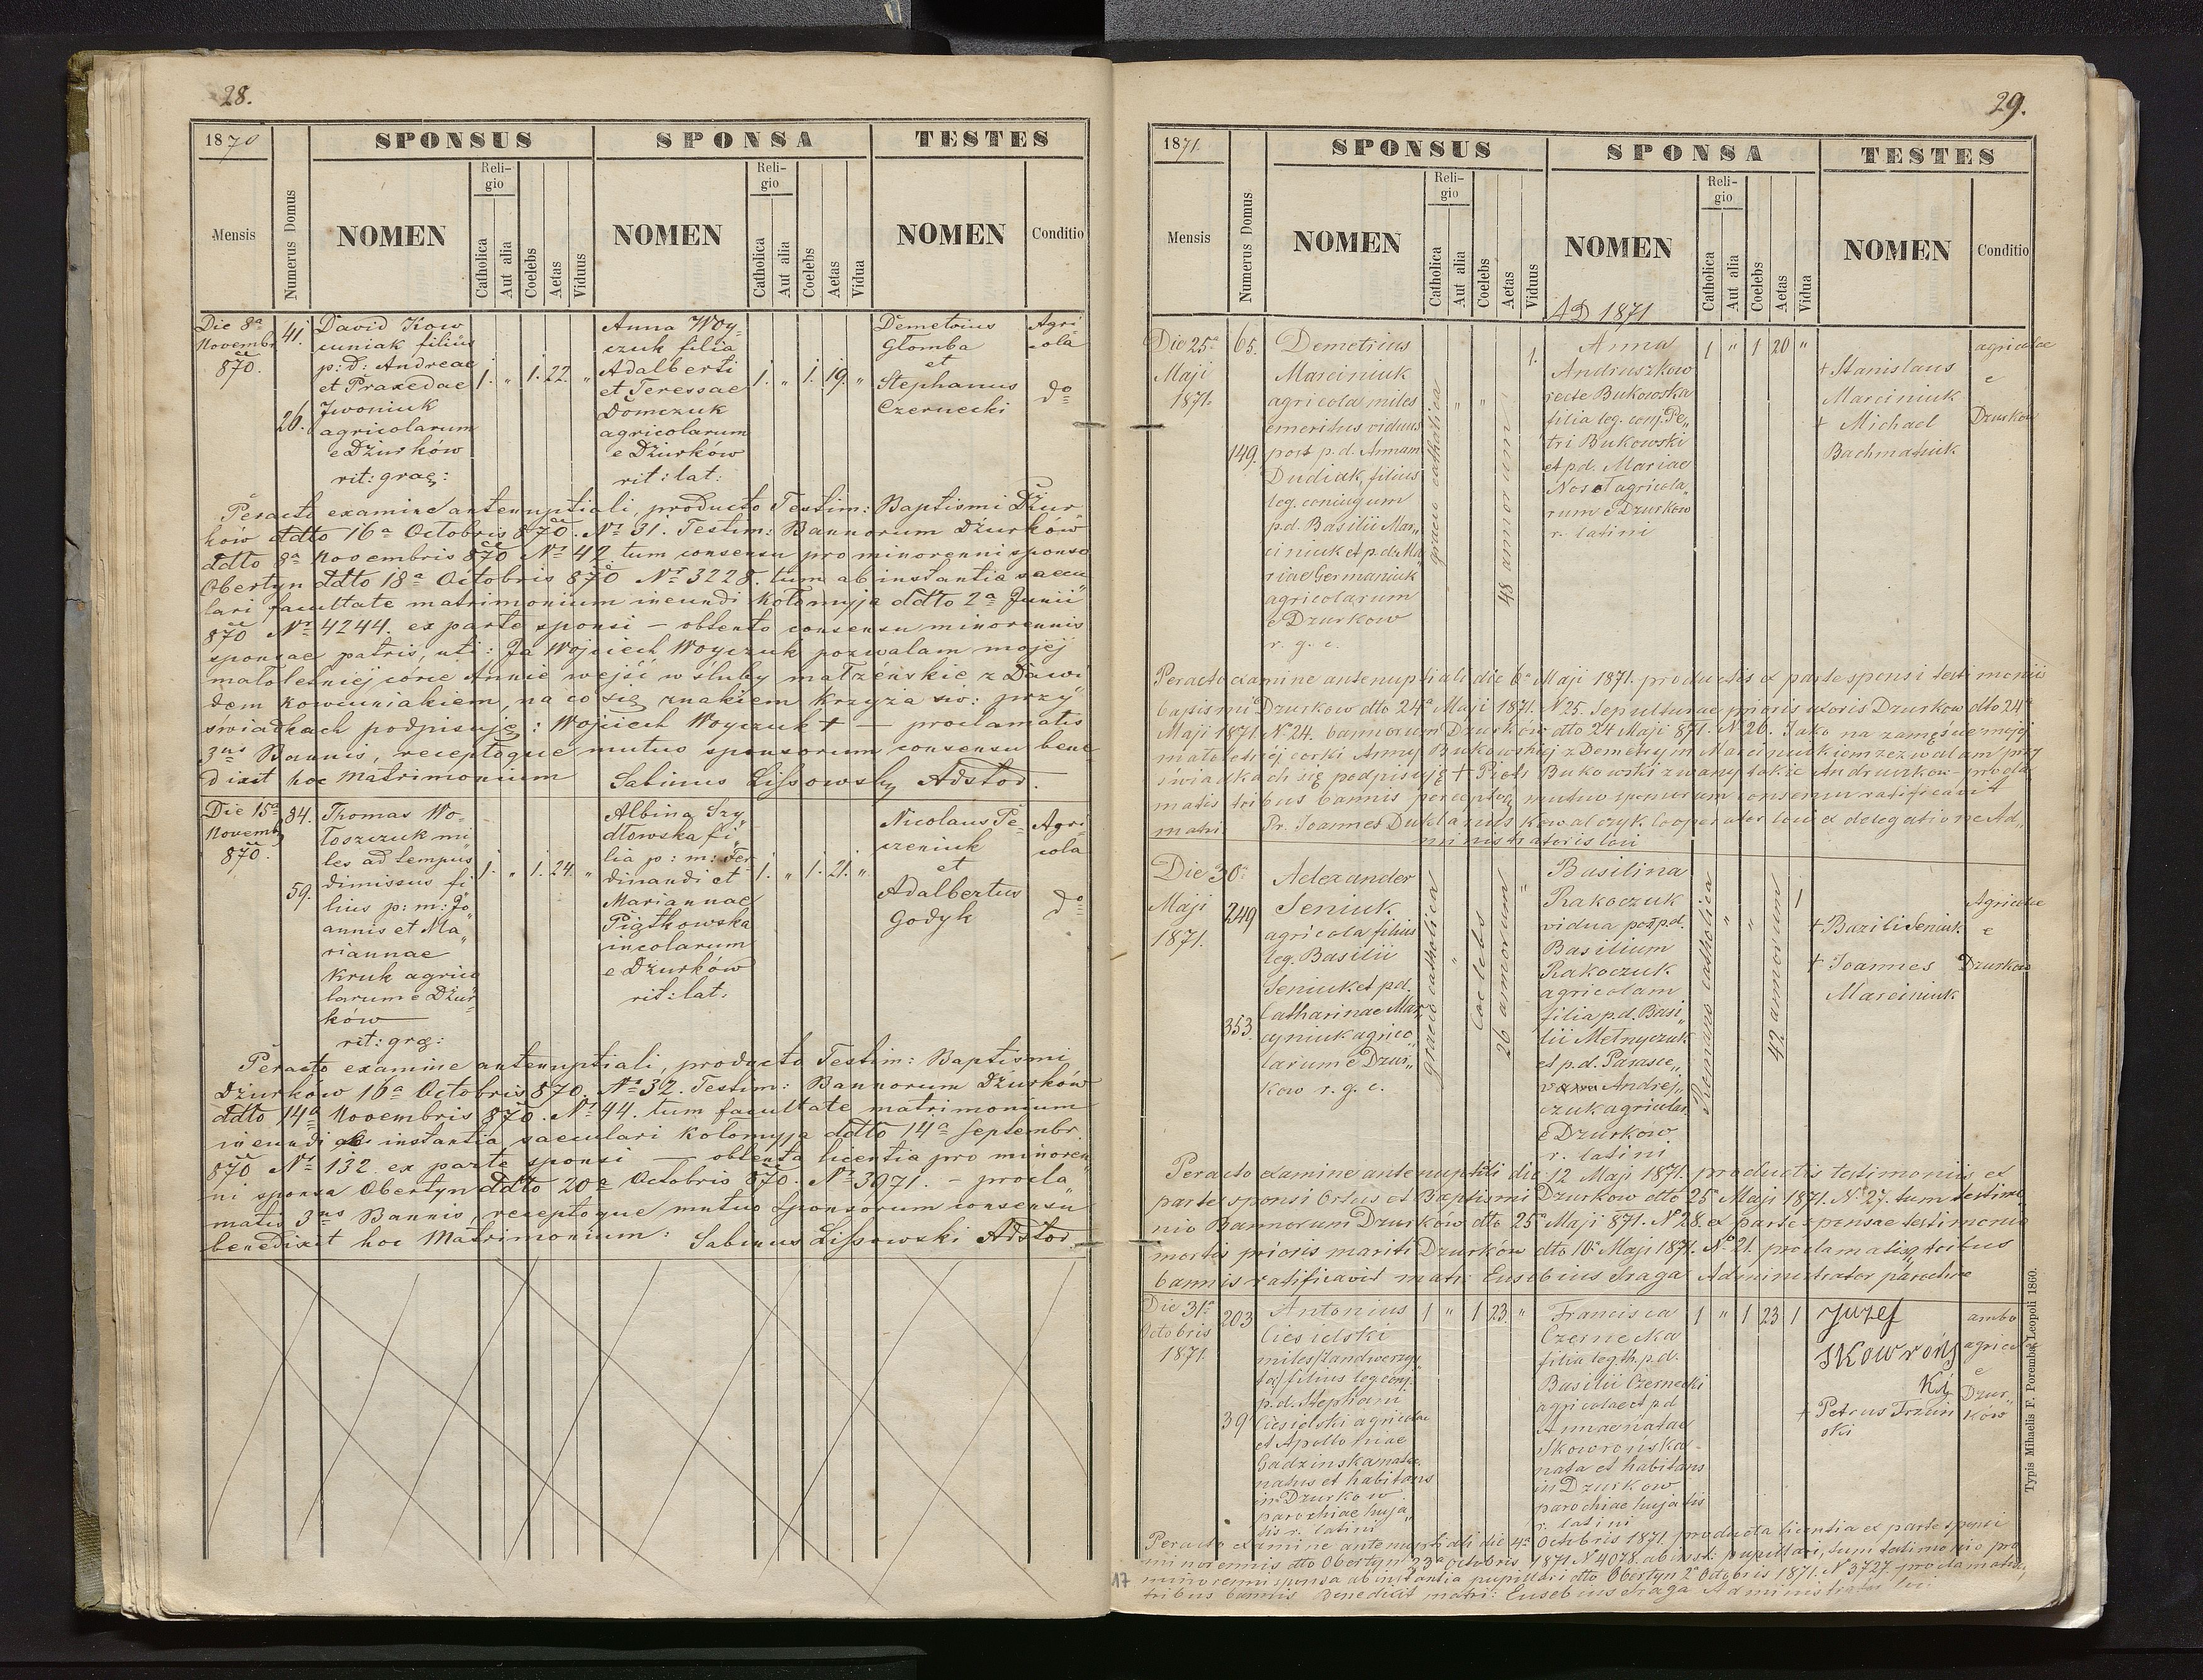 28.
1870
SPONSUS
SPONSA
TESTES
Mensis
Numerus Domus
NOMEN
Reli-
gio
Catholica
Aut alia
Coelebs
Aetas
Viduus
NOMEN
Reli-
gio
Catholica
Aut alia
Coelebs
Aetas
Vidua
NOMEN
Conditio
Die 8a
Novembr
870.
41.
26.
David Kow
cuniak filius
p: d: Andreae
et Praxedae
Iwoniuk
agricolarum
e Dżurków
rit: graec:
1. " 1. 22. "
Anna Woy-
czuk filia
Adalberti
et Teressae
Domczuk
agricolarum
e Dżurków
rit: lat:
1. " 1. 19. "
Demetrius
Głomba
et
Stephanus
Czernecki
Agri-
cola
do
Peracto examine antenuptiali, producto Testim: Baptismi Dżur
ków ddto 16a Octobris 870. Nr 31. Testim: Bannorum Dżurków
ddto 8a Novembris 870 Nr 42. tum consensu pro minorenni sponso
Obertyn ddto 18a Octobris 870 Nr 3228. tum ab instantia saecu
lari facultate matrimonium ineundi Kołomyja ddto 2a Junii
870 Nr 4244. ex parte sponsi – obtento consensu minorennis
sponsae patris, uti: Ja Wojciech Woyczuk pozwalam mojej
małoletniej córce Annie wejść w śluby małżeńskie z Dawi
dem Kowcuniakiem, na co się znakiem krzyża św: przy
świadkach podpisuję: Wojciech Woyczuk + – proclamatis
3us Bannis, receptoque mutuo sponsorum consensu bene
dixit hoc Matrimonium Sabinus Lissowsky Adstor.
Die 15a
Novemb
870.
84.
59.
Thomas Wo-
łoszczuk mi
les ad tempus
dimissus fi
lius p: m: Jo
annis et Ma„
riannae
Kruk agrico
larum e Dżur
ków
rit: grec:
1. " 1. 24. "
Albina Szy
dłowska fi„
lia p: m: Fer
dinandi et
Mariannae
Piątkowska
incolarum
e Dżurków
rit: lat.
1. " 1. 21. "
Nicolaus Pe-
czeniuk
et
Adalbertus
Godyk
Agri-
cola
do
Peracto examine antenuptiali, producto Testim: Baptismi
Dżurków 16a Octobris 870. Nr 32. Testim: Bannorum Dżurków
ddto 14a Novembris 870. Nr 44. tum facultate matrimonium
ineundi ab instantia saeculari Kolomyja ddto 14a Septembr.
870 Nr 132. ex parte sponsi – obtenta licentia pro minoren
ni sponsa Obertyn ddto 20a Octobris 870. Nr 3971. – procla
matis 3us Bannis, receptoque mutuo Sponsorum consensu
benedixit hoc Matrimonium: Sabinus Lissowski Adstor
29.
1871
SPONSUS
SPONSA
TESTES
Mensis
Numerus Domus
NOMEN
Reli-
gio
Catholica
Aut alia
Coelebs
Aetas
Viduus
NOMEN
AD 1871
Reli-
gio
Catholica
Aut alia
Coelebs
Aetas
Vidua
NOMEN
Conditio
Die 25a
Maji
1871.
65.
149.
Demetrius
Marciniuk
agricola miles
emeritus viduus
post p. d. Annam
Dudiak, filius
leg. coniugum
p.d. Basilii Mar„
ciniuk et p.d. Ma
riae Germaniuk
agricolarum
e Dzurkow
r. g. c.
graeco catholica
" "
48 annorum
1.
Anna
Andruszkow
recte Bukowska
filia leg. conj. Pe„
tri Bukowski
et pd. Mariae
Nosol agricola„
rum e Dzurkow
r. latini
1 " 1 20 "
+ Stanislaus
Marciniuk
+ Michael
Bachmatiuk
agricolae
e
Dzurkow
Peracto examine antenuptiali die 6a Maji 1871. productis ex parte sponsi testimonii
bapismi Dzurkow dto 24a Maji 1871. N 25. Sepulturae prioris uxoris Dzurkow dto 24a
Maji 1871. N 24. bannorum Dzurków dto 24 Maji 871. N 26. Jako na zamęście mojej
małoletniej corki Anny Bukowskiej z Demetrym Marciniukiem zezwalam przy
swiadkach się podpisuję + Piotr Bukowski zwany także Andruszkow – procla
matis tribus bannis perceptoq mutuo sponsorum consensu ratificavit
matri. Pr. Joannes Duklanus Kowalczyk Cooperator loci ex delegatione Ad„
ministratoris loci
Die 30a
Maji
1871.
249
353
Alexander
Seniuk
agricola filius
leg. Basilii
Seniuk et pd.
Catharinae Mar„
cyniuk agrico„
larum e Dzur„
kow r. g. c.
graeco catholica
"
Coelebs
26 annorum
"
Basilina
Rakoczuk
vidua post pd.
Basilium
Rakoczuk
agricolam
filia p.d. Basi„
lii Melnyczuk
et p.d. Parasce„
vae Andrej„
czuk agricolar.
e Dzurkow
r. latini
Romano catholica
" "
42 annorum
1
+ Bazili Seniuk
+ Joannes
Marciniuk
Agricolae
e
Dzurkow
Peracto examine antenuptiali die 12 Maji 1871. productis testimoniis ex
parte sponsi Ortus et Baptismi Dzurkow dto 25a Maji 1871. N 27. tum testimo
nio Bannorum Dzurków dto 25a Maji 871. N 28. ex parte sponsae testimonio
mortis prioris mariti Dzurków dto 10a Maji 1871. N 21. proclamatisq tribus
bannis ratificavit matr. Eusebius Straga Administrator parochiae
Die 31a
Octobris
1871.
203
39
Antonius
Ciesielski
miles (Landwerzy„
sta) filius leg. conj.
p.d. Stephani
Ciesielski agricolae
et Apolloniae
Gadzinska natae
natus et habitans
in Dzurkow
parochiae huja„
tis r. latini
1 " 1 23. "
Francisca
Czernecka
filia leg. th. p.d.
Basilii Czernecki
agricolae et p.d
Annae natae
Skowrońska
nata et habitans
in Dzurkow
parochiae hujatis
r. latini
1 " 1 23 1
Juzef
SKowrońs
Ki
+ Petrus Trzcin
ski
ambo
agricolae
e
Dzur„
ków
Peracto examine antenuptiali die 4a Octobris 1871. producta licentia ex parte sponsi
minorennis dto Obertyn 23a Octobris 1871 N 4078. ab inst. pupillari, tum testimonio pro
minorenni sponsa ab instantia pupillari dto Obertyn 2a Octobris 1871. N 3727. proclamatis
tribus bannis Benedixit matri: Eusebius Straga Administrator loci
17
Typis Mihaelis F. Poremba Leopoli 1860.